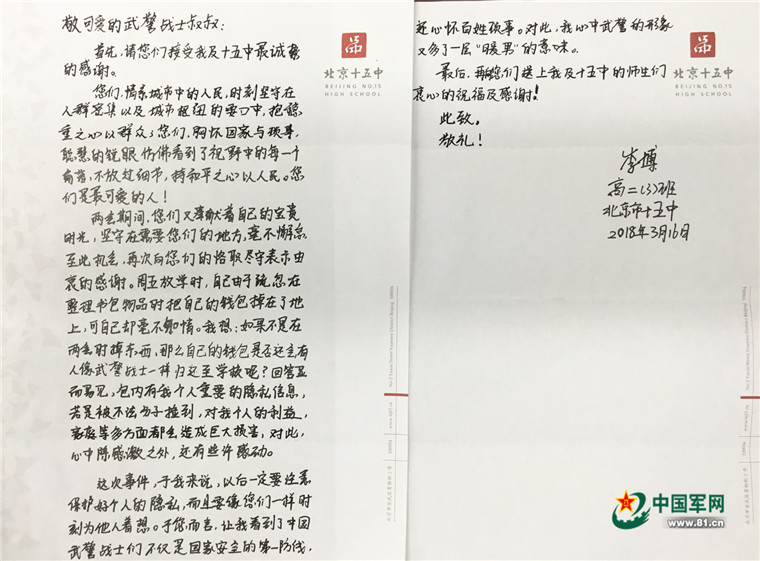 敬可爱的武警战士叔叔：
首先，请您们接受我及十五中最诚挚
的感谢。
您们，情系城市中的人民，时刻坚守在
人群密集以及城市枢纽的要口中，抱稳
重之心以群众；您们，胸怀国家与领导，
聪慧的锐眼仿佛看到了视野中的每一个
角落，不放过细节，持和平之心以人民。您
们是最可爱的人！
两会期间，您们又奉献着自己的宝贵
时光，坚守在需要您们的地方，毫不懈怠。
至此机会，再次向您们的恪职尽守表示由
衷的感谢。周五放学时，自己由于疏忽在
整理书包物品时把自己的钱包掉在了地
上，可自己却毫不知情。我想：如果不是在
两会时掉东西，那么自己的钱包是否还会有
人像武警战士一样归还至学校呢？回答显
而易见，包内有我个人重要的隐私信息，
若是被不法分子捡到，对我个人的利益，
家庭等多方面都会造成巨大损害，对此，
心中除感激之外，还有些许感动。
这次事件，于我来说，以后一定要注意
保护好个人的隐私，而且要像您们一样时
刻为他人着想。于您而言，让我看到了中国
武警战士们不仅是国家安全的第一防线，
北京十五中
BEIJING NO.15
HIGH SCHOOL
还心怀百姓琐事。对此，我心中武警的形象
又多了一层“暖男”的意味。
最后，再向您们送上我及十五中的师生们
衷心的祝福及感谢！
此致。
敬礼！
李博
高二(3)班
北京市十五中
2018年3月16日
北京十五中
BEIJING NO.15
HIGH SCHOOL
中国军网
www.81.cn